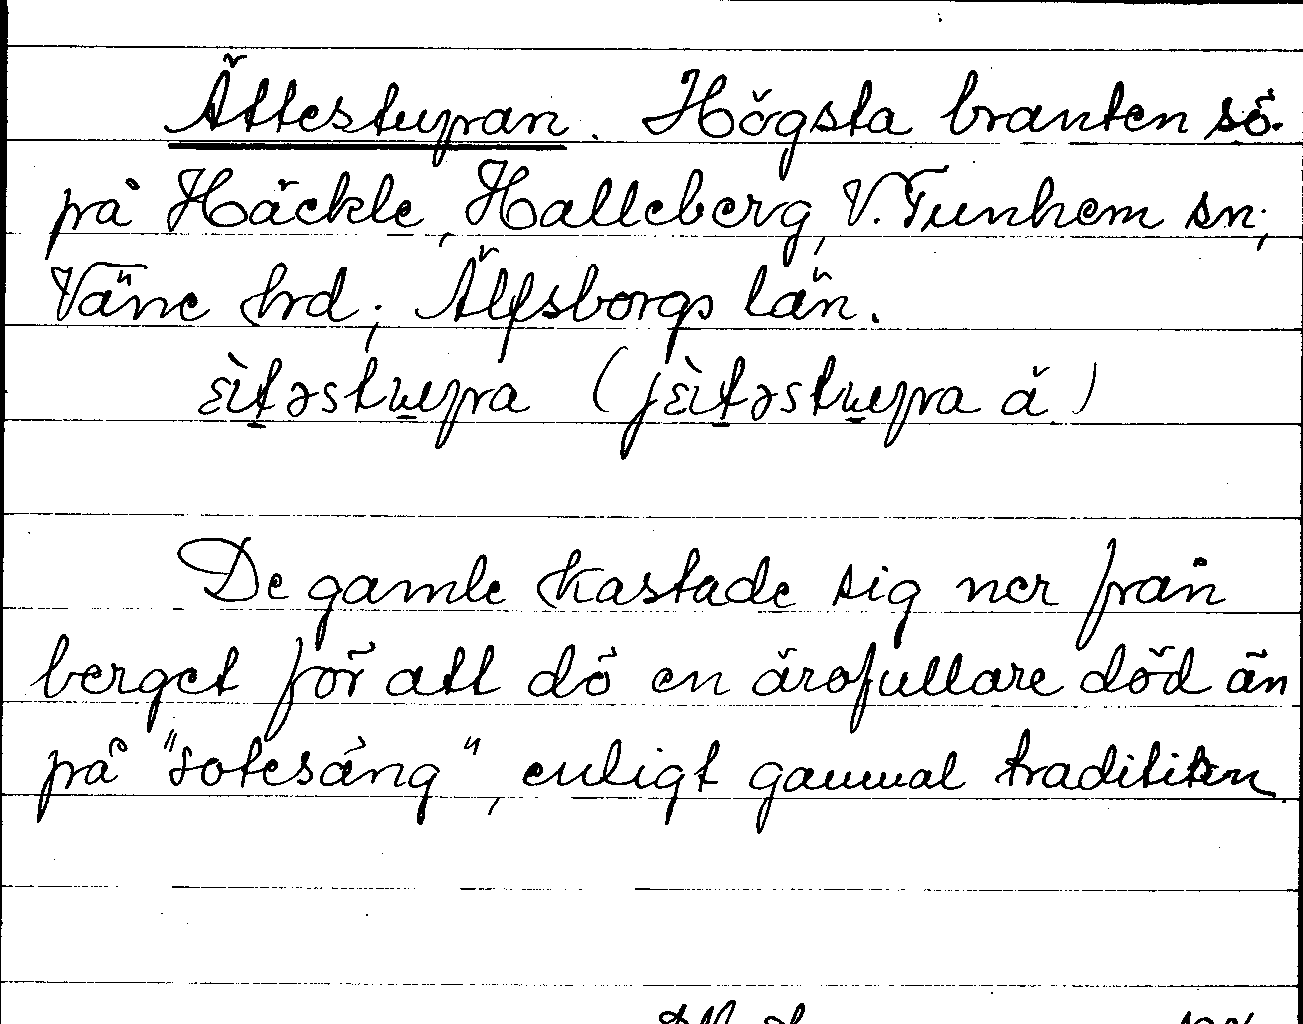 Ättestupan. Högsta branten sö.
på Häckle, Halleberg, V. Tunhem sn;
Väne hrd; Älfsborgs län.
De gamle kastade sig ner från
berget för att dö en ärofullare död än
på "sotesäng", enligt gammal traditition